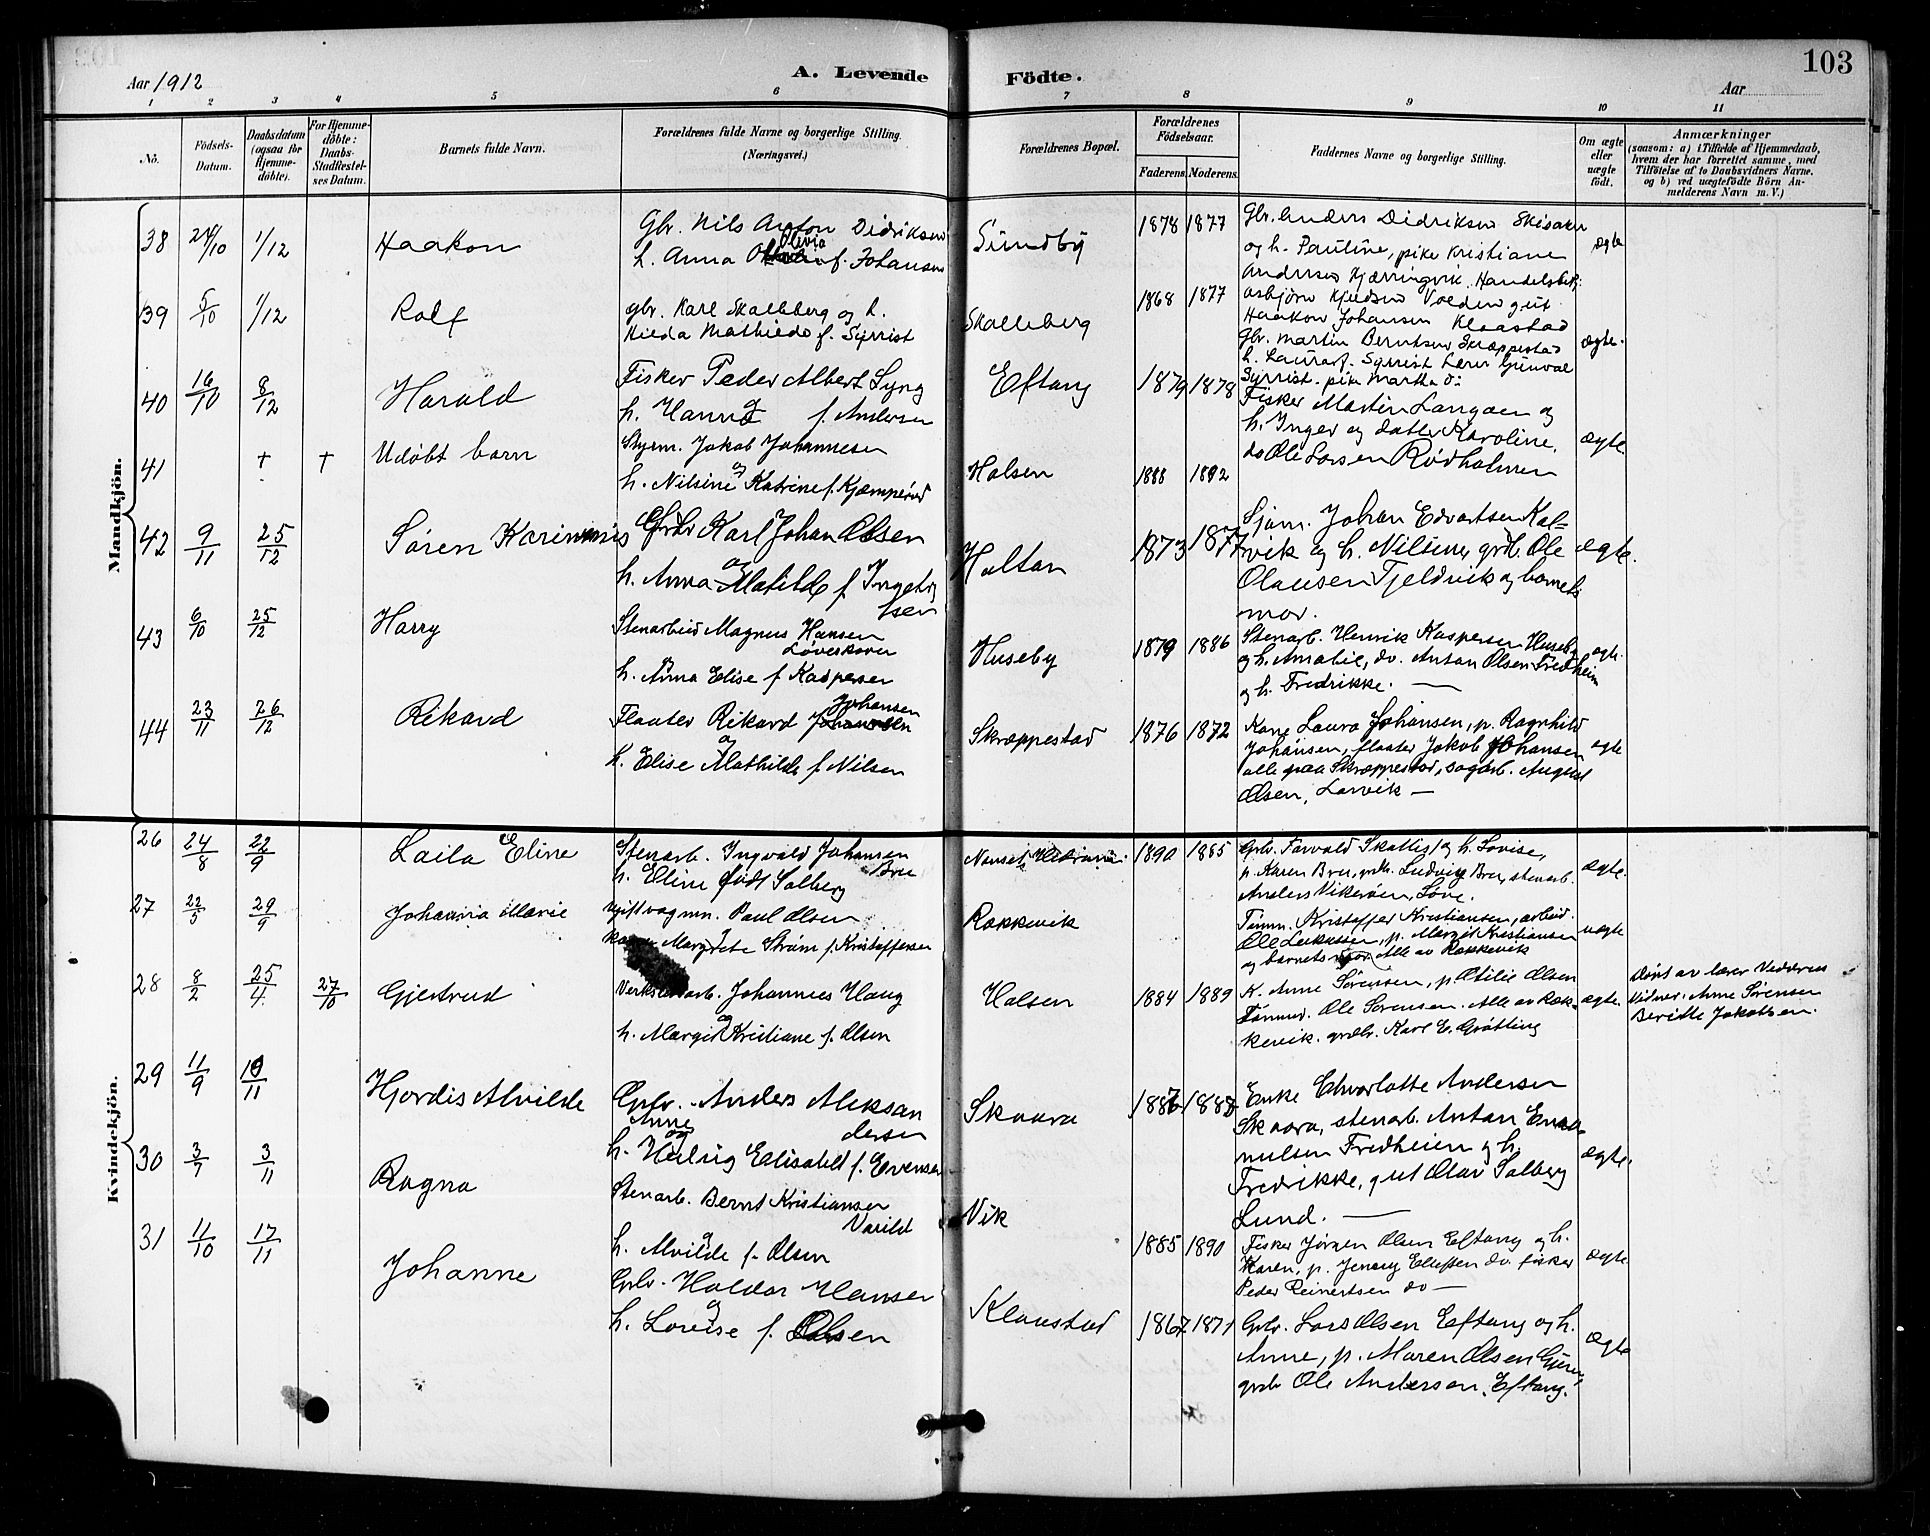 103
Aar 1912
A. Levende
Födte.
Aar
1 2 3 4 5 6 7 8 9 10 11
No.
Födsels-
Datum.
Daabsdatum
(ogsaa for
Hjemme-
döbte).
For Hjemme-
döbte:
Daabs-
Stadfæstel-
ses Datum.
Barnets fulde Navn.
Forældrenes fulde Navne og borgerlige Stilling.
(Næringsvei.)
Forældrenes Bopæl.
Forældrenes
Födselsaar.
Faderens.
Moderens.
Faddernes Navne og borgerlige Stilling.
Om ægte
eller
uægte
födt.
Anmærkninger
(saasom: a) i Tilfælde af Hjemmedaab,
hvem der har forrettet samme, med
Tilföielse af to Daabsvidners Navne,
og b) ved uægtefödte Börn An-
melderens Navn m. V.)
Mandkjön.
38 24/10 1/12 Haakon
Gbr. Nils Anton Didriksen
Olivia
h. Anna f. Johansen
Sundby 1878 1877
Gbr. Anders Didriksen
og h. Pauline, pike Kristiane
Andersen Kjærringvik. Handelsbetj.
ægte
39 5/10 1/12 Rolf
gbr. Karl Skalleberg og h.
Hilda Mathilde f. Syrrist
Skalleberg 1868 1877
Asbjörn Kjeldsen Volden gut
Haakon Johansen Klaastad
Gbr. Martin Berntsen Skræppestad
h. Laura f. Syrrist Lærer Gunval
Syrrist. pike Martha do
ægte.
40 16/10 8/12 Harald
Fisker Peder Albert Lyng
og
h. Hanna f. Andersen
Eftang 1879 1878
Fisker Martin Langøen og
h. Inger og datter Karoline,
do Ole Larsen Rødholmen
ægte
41 + + Udøbt barn
Styrm. Jakob Johannesen
og
h. Nilsine Katrine f. Kjæmperød
Halsen 1888 1892
42 9/11 25/12 Søren
Grbr Karl Johan Olsen
og
h. Anna Matilde f Ingebrig
tsen
Holtan 1873 1877
Sjøm. Johan Edvartsen Kal-
vik og h. Nilsine, grdb. Ole
Olausen Tjeldvik og barnets
mor.
ægte.
43 6/10 25/12 Harry
Stenarbeid Magnus Hansen
Løveskoven
og
h. Anna Elise f Kaspersen
Huseby 1879 1886
Stenarb. Henrik Kaspersen Huseby
og h. Amalie, do. Anton Olsen Fredheim
og h. Fredrikke. —
ægte.
44 23/11 26/12 Rikard
Johansen
Fløater Rikard
og
h. Elise Mathilde f Nilsen
Skræppestad 1876 1872
Kone Laura Johansen, p. Ragnhild
Johansen, fløater Jakob Johansen
alle paa Skræppestad, sagarb. August
Olsen, Larvik —
ægte
Kvindekjön.
26 24/8 22/9 Laila Eline
Stenarb. Ingvald Johansen
Bru
h. Eline født Solberg
Nanset, Hedrum. 1890 1885
Grbr. Torvald Skallist og h. Lovise,
p. Karen Bru, grdbr. Ludvig Bru, stenarb.
Anders Vikerøen, Løve.
ægte.
27 22/5 29/9 Johanna Marie
Ugift vognm. Paul Olsen
Margrete Strøm f. Kristoffersen
Rakkevik
Tømm. Kristoffer Kristiansen, arbeid.
Ole, p. Margit Kristiansen
og barnets mor. Alle av Rakkevik
uægte
28 8/2 25/4. 27/10 Gjertrud
Verkstedarb. Johannes Haug
og
h. Margit Kristiane f. Olsen
Halsen 1884 1889
K. Anne Sørensen, p. Otilie Olsen
Tømmm. Ole Sørensen. Alle av Rak-
kevik. grdbr. Karl E. Grøtting
ægte.
Døpt av lærer
Vidner. Anne Sørensen
Jakobsen.
29 11/9 10/11 Hjordis Alvilde
Grbr. Anders Aleksan
dersen
Anne
og
h. Hulrig Elisabet f. Evensen
Skaara 1887 1888
Enke Charlotte Andersen
Skaara, stenarb. Anton Ema-
nulsen Fredheim og h.
Fredrikke, gut Olav Solberg
Lund. —
ægte.
30 3/7 3/11 Ragna
Stenarb. Bernt Kristiansen
Varild
og
h. Alvilde f. Olsen
Vik 1885 1890
Fisker Jørgen Olsen Eftang og h.
Karen, p. Jenny Ellefsen do. fisker
Peder Reinertsen do —
ægte
31 11/10 17/11 Johanne
Grbr. Haldor Hansen
og
h. Lovise f. Olsen
Klaastad 1867 1871
Grbr. Lars Olsen Eftang og h.
Anne, p. Maren Olsen
grdb Ole Andersen. Eftang.
ægte